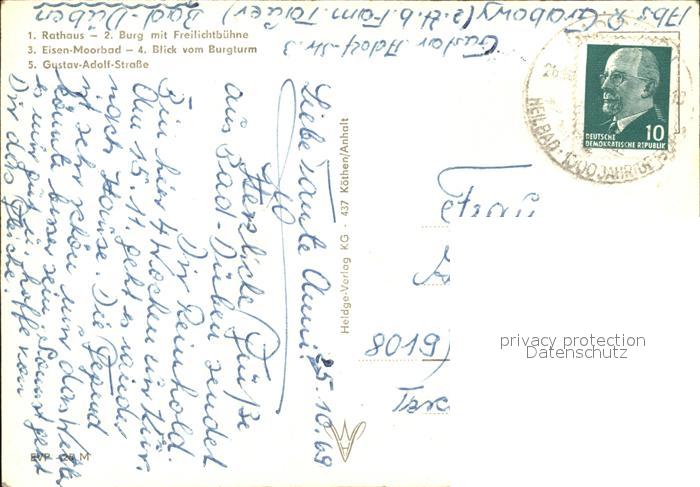 Abs. R. Grabow (z. Zt. b. Fam. Tauer) Bad-Düben
Gustav Adolf-Str. 3
1. Rathaus — 2. Burg mit Freilichtbühne
3. Eisen-Moorbad — 4. Blick vom Burgturm
5. Gustav-Adolf-Straße
25.10.69
Liebe Tante Anni!
Herzliche Grüße
aus Bad-Düben sendet
Dir Reinhold.
Bin hier 4 Wochen zur Kur.
Am 15.11. geht es wieder
nach Hause. Die Gegend
ist sehr schön, nur das Wetter
könnte besser sein. Sonst geht
es mir gut, ich hoffe von
Dir das Gleiche.
EVP -,20 M
Heldge-Verlag KG · 437 Köthen/Anhalt
DEUTSCHE
DEMOKRATISCHE REPUBLIK
10
HEILBAD · 1000 JAHR
Frau
8019
privacy protection
Datenschutz